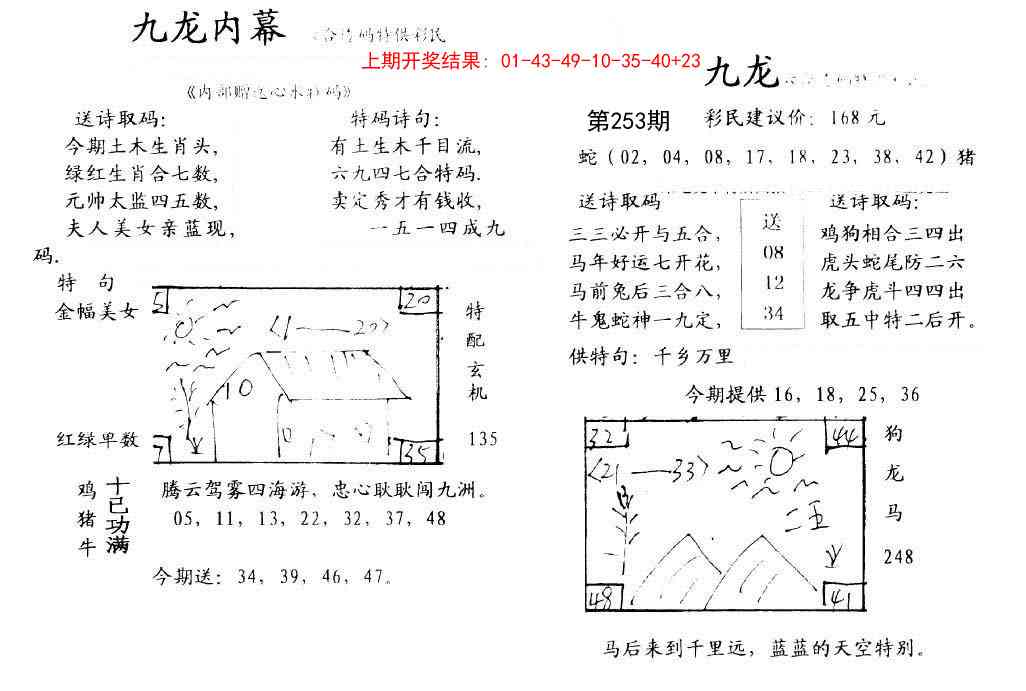 九龙内幕
上期开奖结果：01-43-49-10-35-40+23
送诗取码：
今期土木生肖头，
绿红生肖合七数，
元帅太监四五数，
夫人美女亲蓝现，
码.
特码诗句：
有土生木千目流，
六九四七合特码.
卖定秀才有钱收，
一五一四成九
特 句
金幅美女
红绿单数
5
20
〈1——20〉
10
7
35
特
配
玄
机
135
鸡
猪
牛
十己功满
腾云驾雾四海游，忠心耿耿闯九洲。
05，11，13，22，32，37，48
今期送：34，39，46，47。
九龙
第253期 彩民建议价：168元
蛇（02，04，08，17，18，23，38，42）猪
送诗取码
三三必开与五合，
马年好运七开花，
马前兔后三合八，
牛鬼蛇神一九定，
送
08
12
34
送诗取码：
鸡狗相合三四出
虎头蛇尾防二六
龙争虎斗四四出
取五中特二后开。
供特句：千乡万里
今期提供16，18，25，36
32
44
〈21——33〉
48
41
狗
龙
马
248
马后来到千里远，蓝蓝的天空特别。